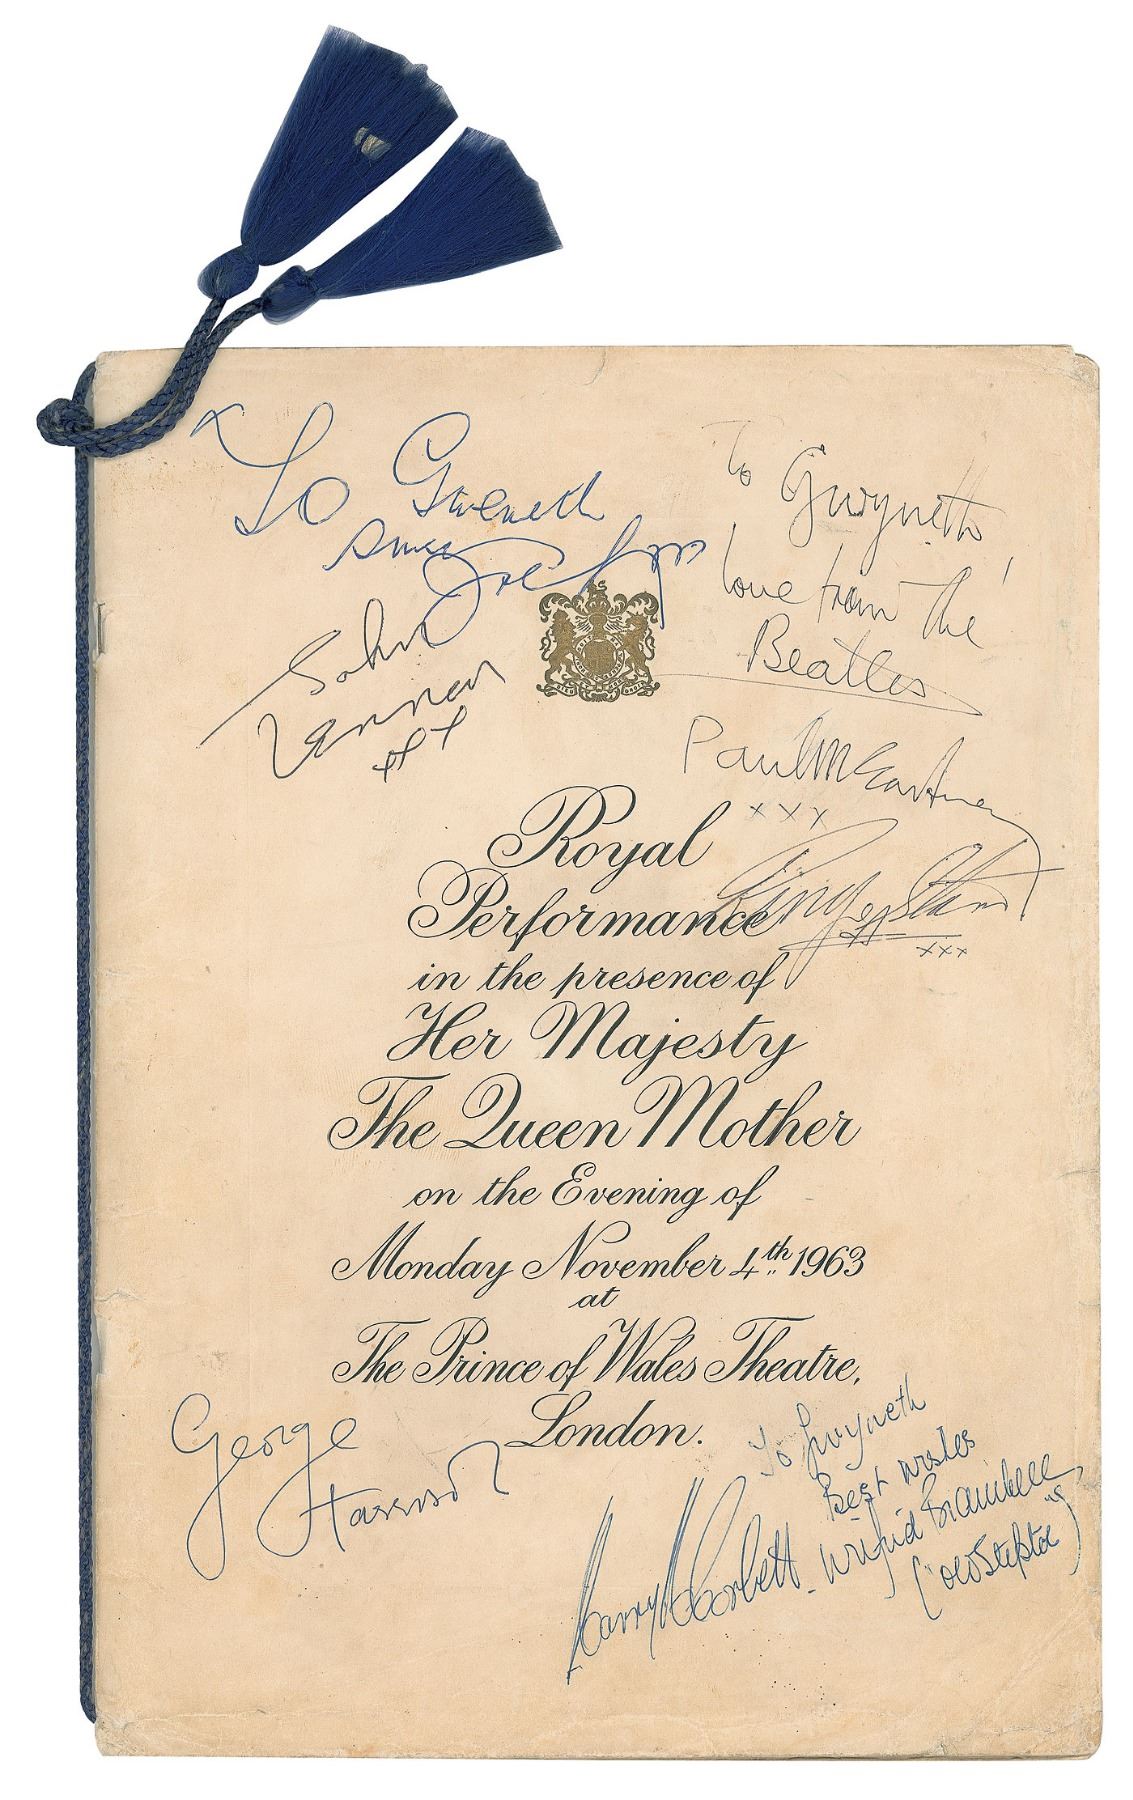 To Gweneth
Since
Joe
John
Lennon
xxx
To Gwyneth
love from the
Beatles
Paul McCartney
xxx
Ringo Starr
xxx
Royal
Performance
in the presence of
Her Majesty
The Queen Mother
on the Evening of
Monday November 4th 1963
at
The Prince of Wales Theatre,
London.
George
Harrison
To Gwyneth
Best wishes
Wilfrid Brambell
("Old Steptoe")
Harry H Corbett